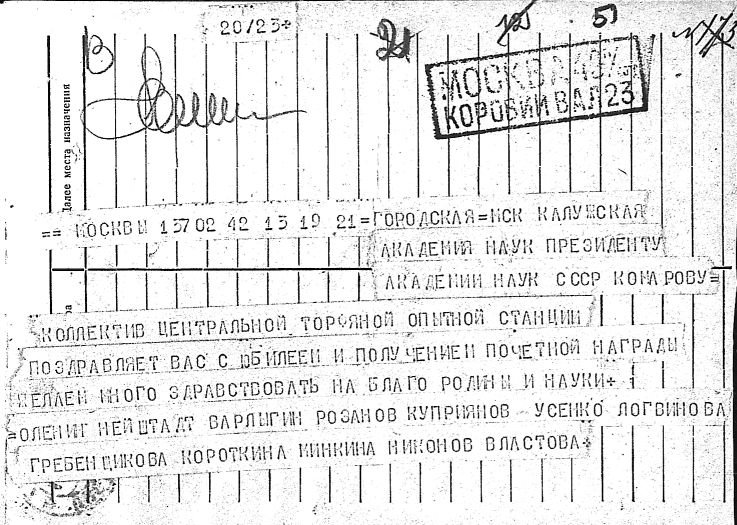 20/23+
21
12
5
N 173
В
МОСКВА
КОРОВИЙ ВАЛ 23
Далее места назначения
== МОСКВЫ 13702 42 13 19 21=ГОРОДСКАЯ=МСК КАЛУЖСКАЯ
АКАДЕМИЯ НАУК ПРЕЗИДЕНТУ
АКАДЕМИИ НАУК СССР КОМАРОВУ=
КОЛЛЕКТИВ ЦЕНТРАЛЬНОЙ ТОРФЯНОЙ ОПЫТНОЙ СТАНЦИИ
ПОЗДРАВЛЯЕТ ВАС С ЮБИЛЕЕМ И ПОЛУЧЕНИЕМ ПОЧЕТНОЙ НАГРАДЫ
ЖЕЛАЕМ МНОГО ЗДРАВСТВОВАТЬ НА БЛАГО РОДИНЫ И НАУКИ+
=ОЛЕНИН НЕЙШТАДТ ВАРЛЫГИН РОЗАНОВ КУПРИЯНОВ УСЕНКО ЛОГВИНОВА
ГРЕБЕНЩИКОВА КОРОТКИНА МИНКИНА НИКОНОВ ВЛАСТОВА+